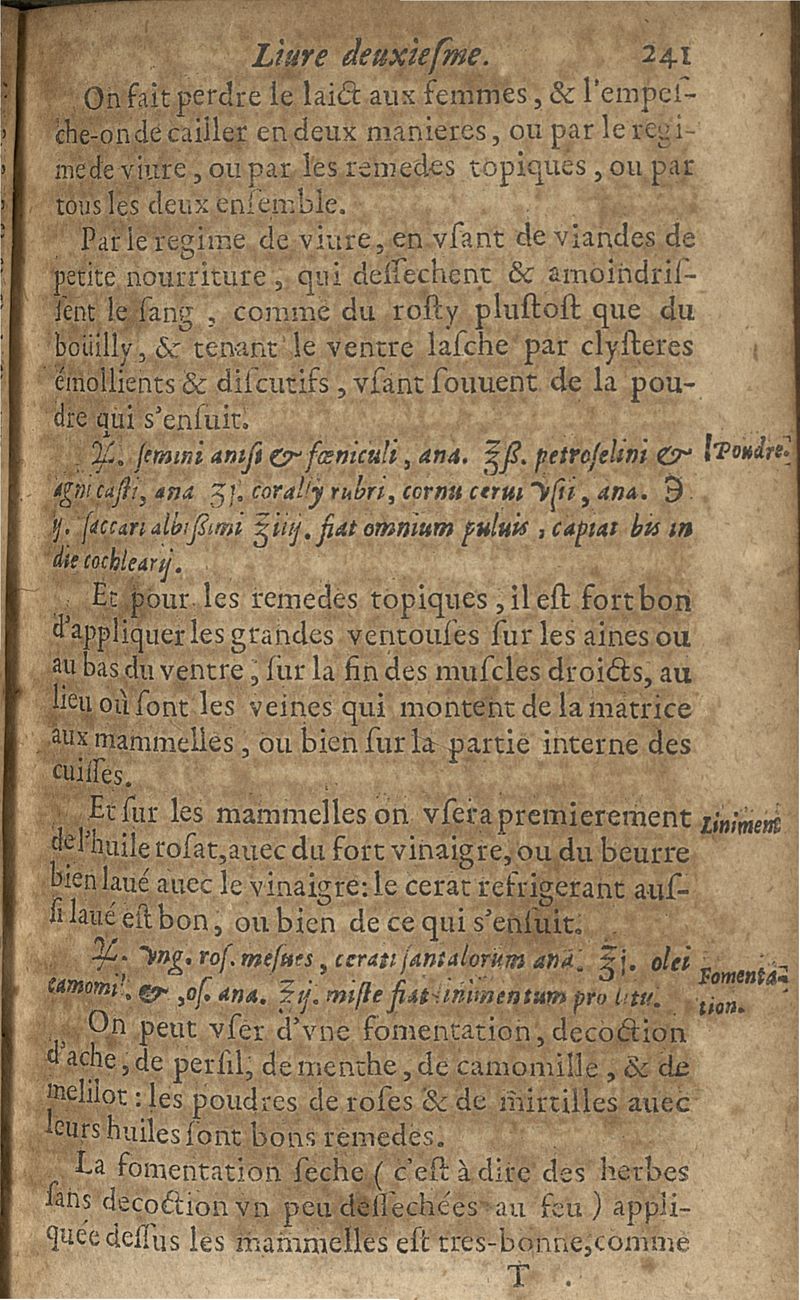 Liure deuxieſme. 241
On fait perdre le laict aux femmes, & l'empeſ-
che-on de cailler en deux manieres, ou par le regi-
me de viure, ou par les remedes topiques, ou par
tous les deux enſemble.
Par le regime de viure, en vſant de viandes de
petite nourriture, qui deſſechent & amoindriſ-
ſent le ſang, comme du roſty pluſtoſt que du
boüilly, & tenant le ventre laſche par clyſteres
émollients & diſcutifs, vſant ſouuent de la pou-
dre qui s'enſuit.
♃. ſemini aniſi & fœniculi, ana. ℥ß. petroſelini &
Poudre.
agni caſti, ana ʒj. corallij rubri, cornu cerui vſti, ana. ℈
ij. ſaccari albißimi ℥iiij. fiat omnium puluis, capiat bis in
die cochlearij.
Et pour les remedes topiques, il eſt fort bon
d'appliquer les grandes ventouſes ſur les aines ou
au bas du ventre, ſur la fin des muſcles droicts, au
lieu où ſont les veines qui montent de la matrice
aux mammelles, ou bien ſur la partie interne des
cuiſſes.
Et ſur les mammelles on vſera premierement
Liniment
de l'huile roſat, auec du fort vinaigre, ou du beurre
bien laué auec le vinaigre: le cerat refrigerant auſ-
ſi laué eſt bon, ou bien de ce qui s'enſuit.
♃. vng. roſ. meſues, cerati ſantalorum ana. ℥j. olei
camomil. & roſ. ana. ℥ij. miſle fiat linimentum pro litu.
Fomenta-
tion.
On peut vſer d'vne fomentation, decoction
d'ache, de perſil, de menthe, de camomille, & de
melilot: les poudres de roſes & de mirtilles auec
leurs huiles ſont bons remedes.
La fomentation ſeche (c'eſt à dire des herbes
ſans decoction vn peu deſſechées au feu) appli-
quée deſſus les mammelles eſt tres-bonne, comme
T